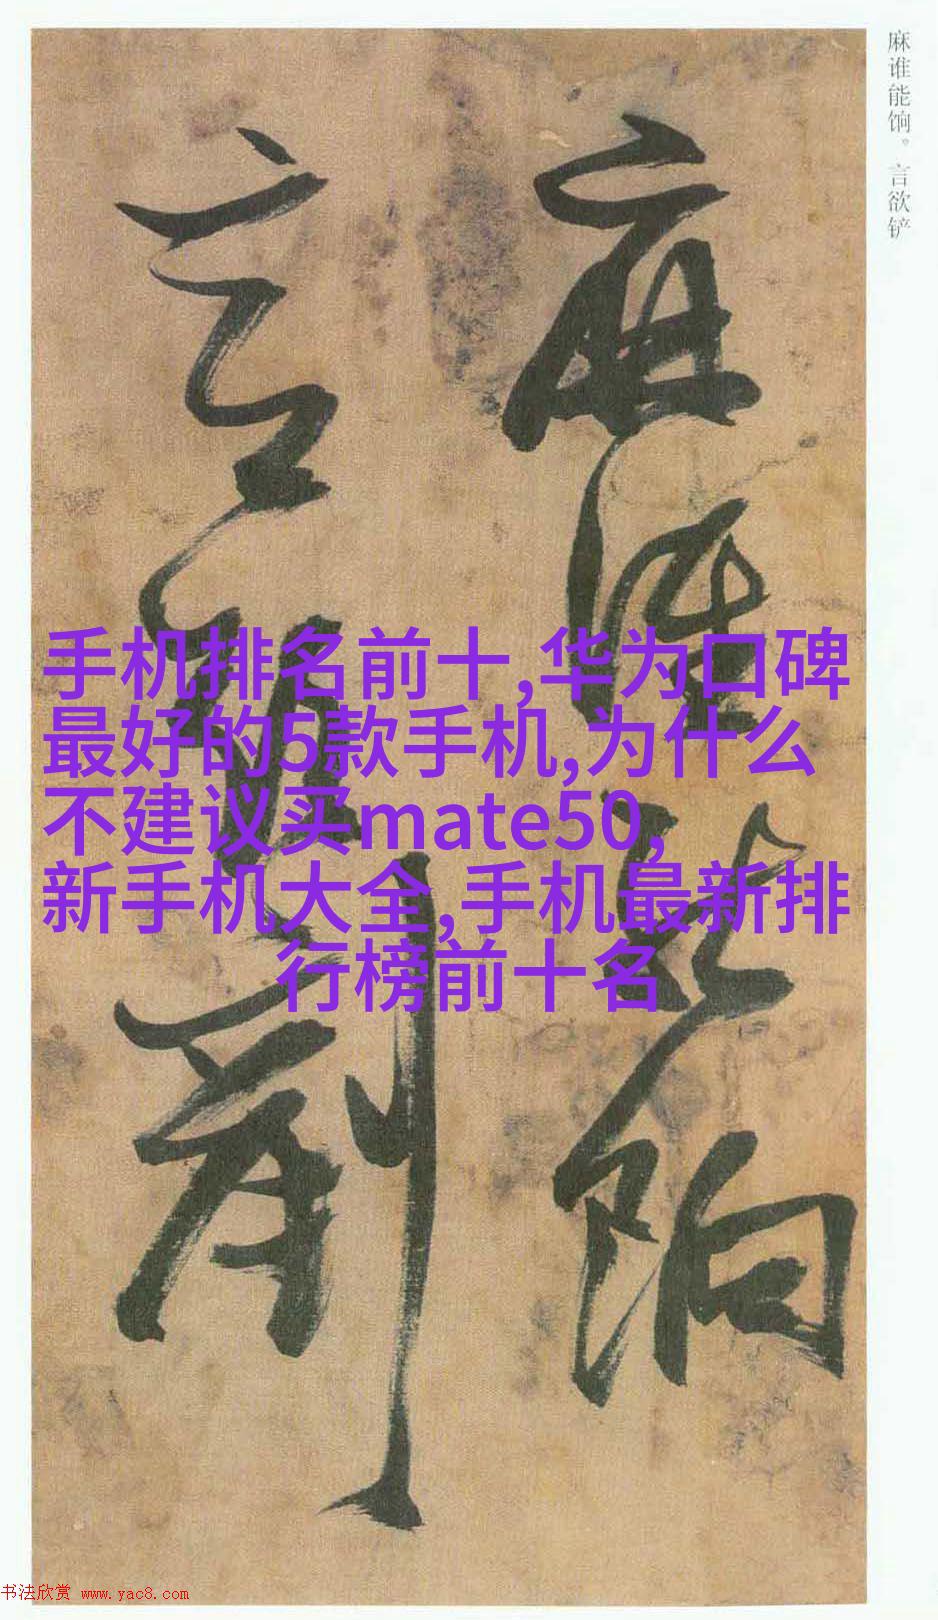 麻谁能饷。言欲铲
麻谁能饷
言欲刬
手机排名前十,华为口碑
最好的5款手机,为什么
不建议买mate50,
新手机大全,手机最新排
行榜前十名
书法欣赏 www.yac8.com